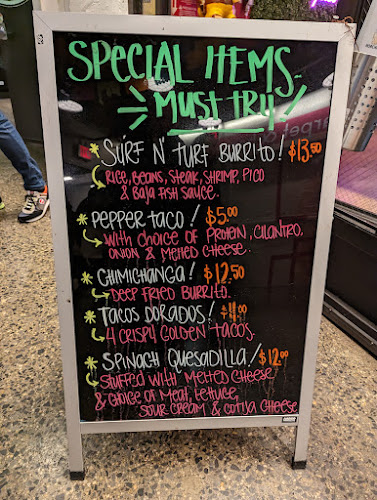 SPECIAL ITEMS..
MUST TRY
* SURF N' TURF BURRITO! $13.50
RICE, BEANS, STEAK, SHRIMP, PICO
& BAJA FISH SAUCE.
* PEPPER TACO! $5.00
WITH CHOICE OF PROTEIN, CILANTRO,
ONION & MELTED CHEESE.
* CHIMICHANGA! $12.50
DEEP FRIED BURRITO.
* TACOS DORADOS!
4 CRISPY GOLDEN TACOS.
* SPINACH QUESADILLA! $12.00
STUFFED WITH MELTED CHEESE
& CHOICE OF MEAT, LETTUCE,
SOUR CREAM & COTIJA CHEESE